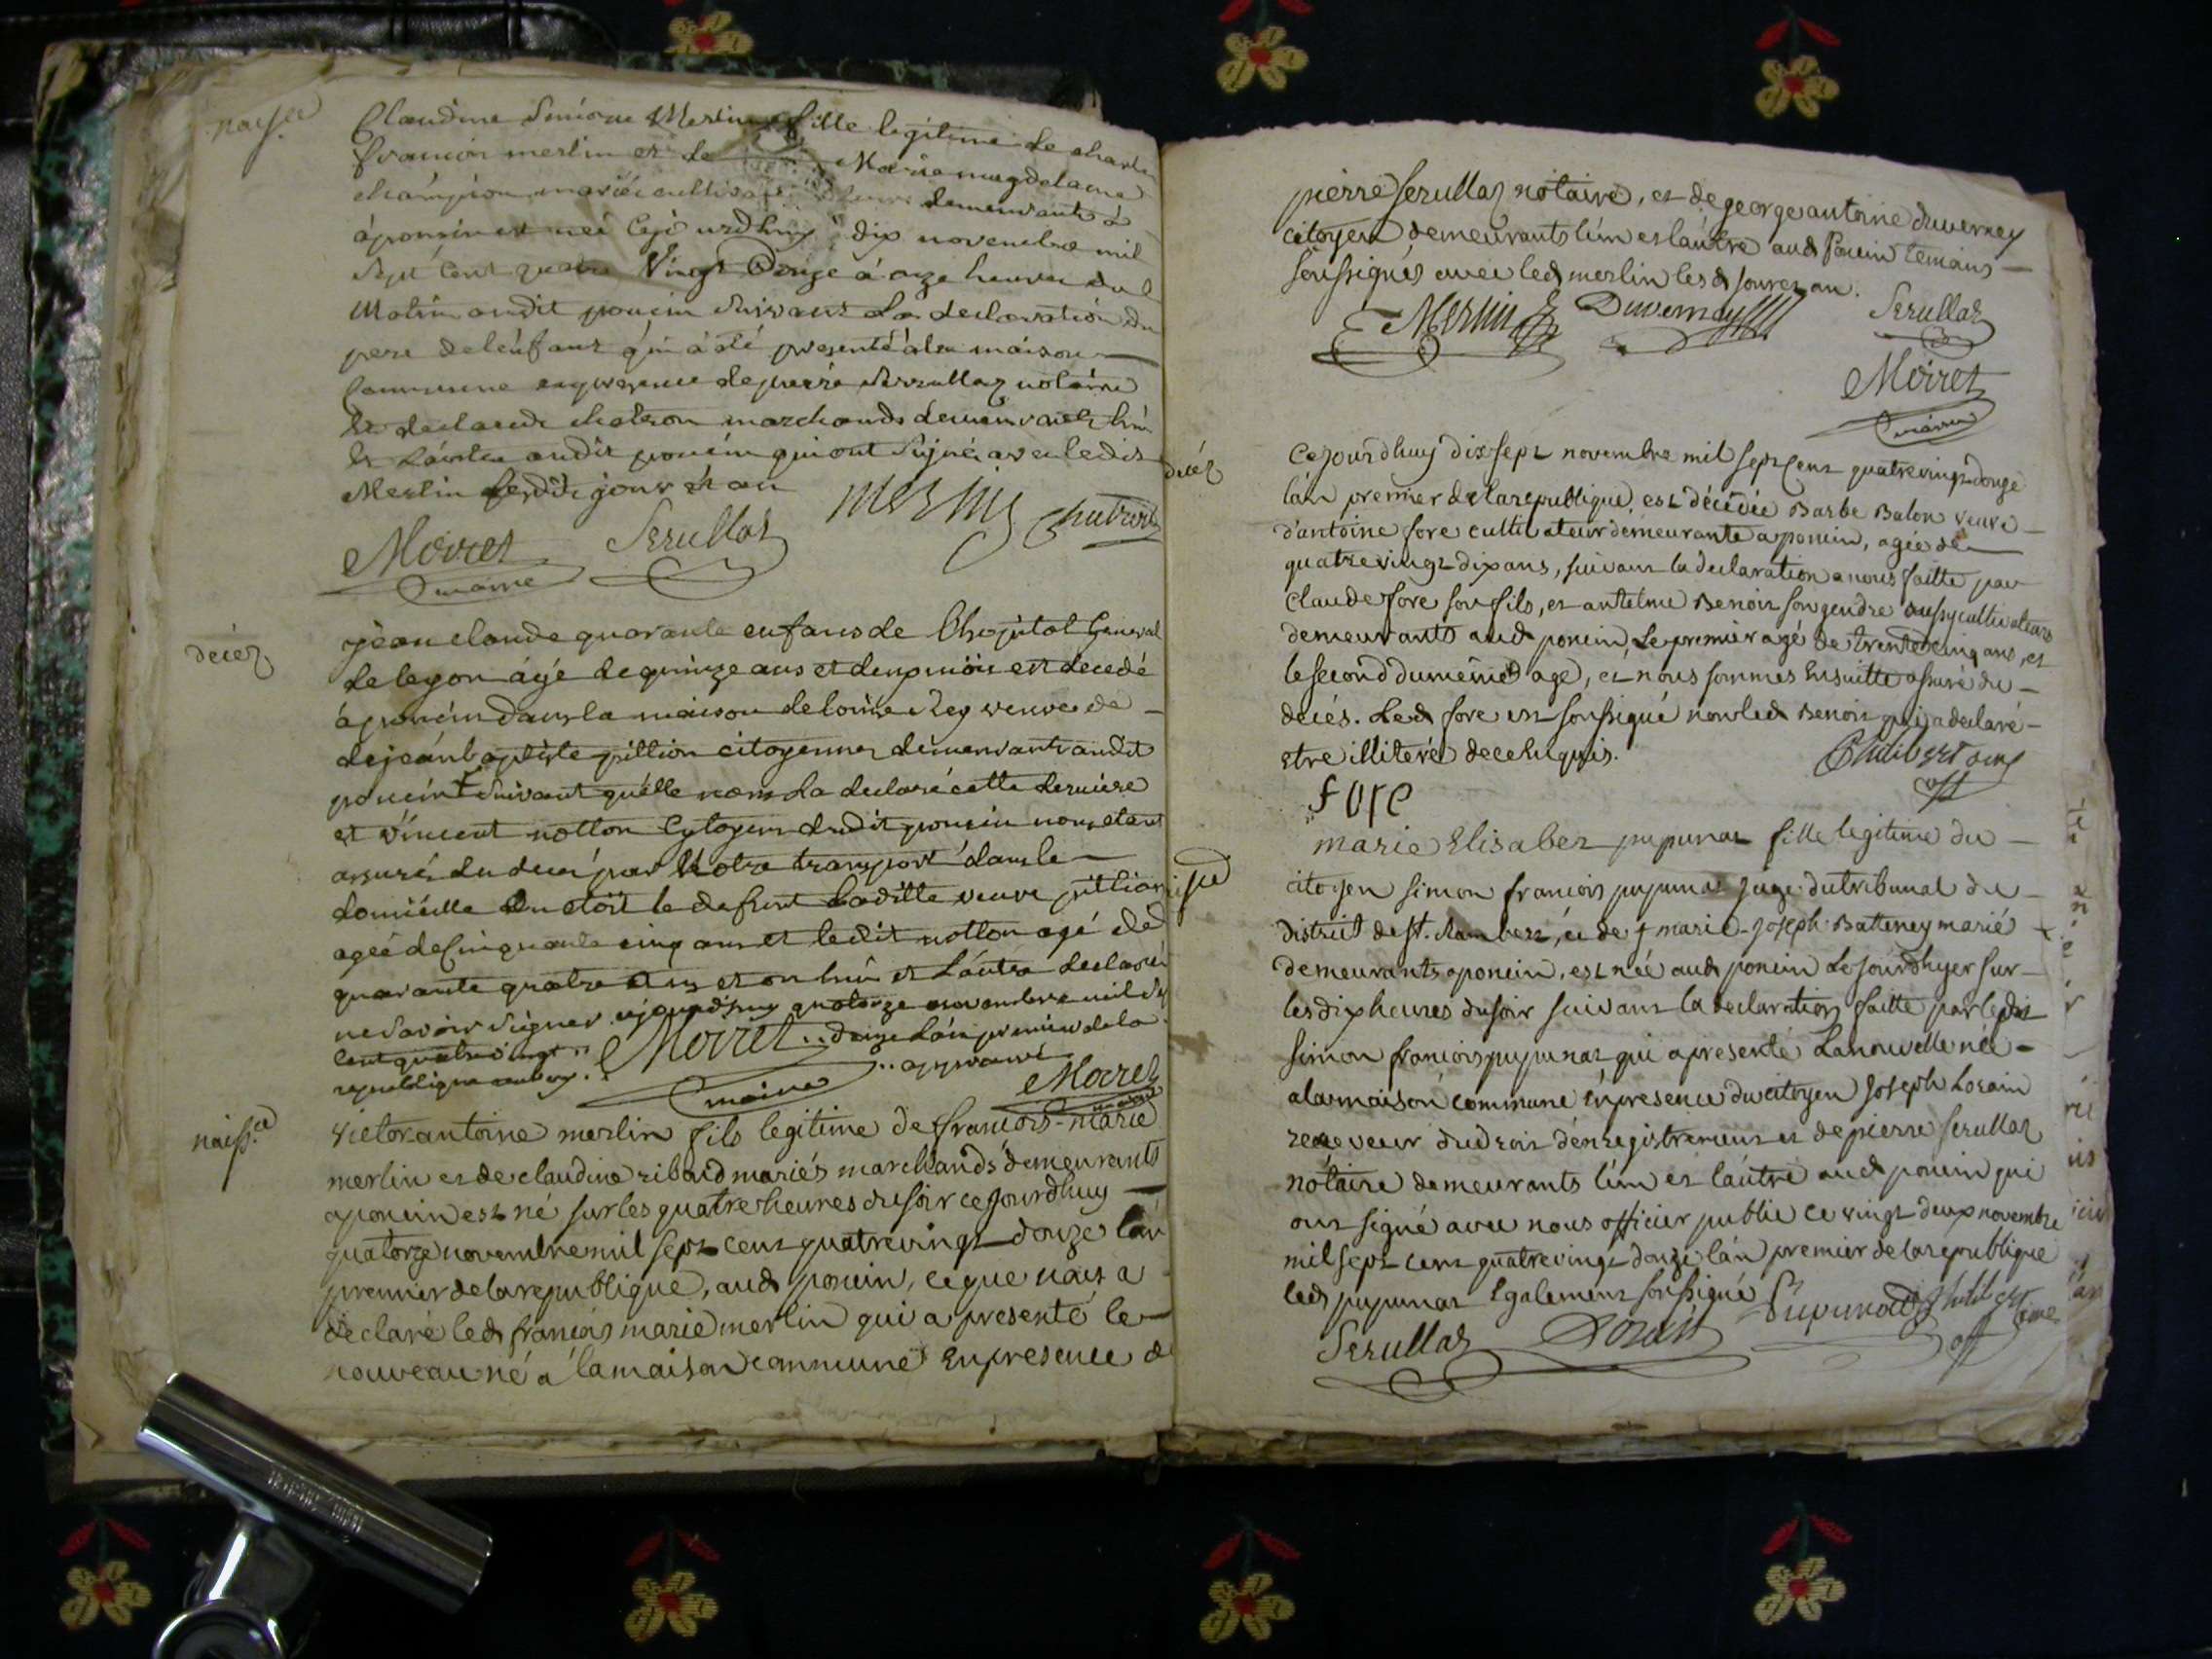 naisce
Claudine Simone Merlin fille legitime de charles
francois merlin et de Marie magdelaine
champion mariés cultivateurs demeurants à
à poncin est née cejourdhuy dix novembre mil
sept cent quatre Vingt Douze à onze heures du
Matin audit poncin suivant La declaration du
pere de lenfant qui à été presenté à la maison
commune en presence de pierre Serrullaz notaire
et de claude chatron marchands demeurants lun
et Lautre audit poncin qui ont signé avec ledit
Merlin lesdits jour et an
merlin
Moiret Serullaz
maire
decez
jean claude quarante enfans de Lhopital General
de leyon agé de quinze ans et deux mois est decedé
à poncin dans la maison de loüise Rey veuve de
de jean baptiste pillion citoyenne demeurants audit
poncin suivant quélle nous La declaré cette derniere
et vincent notton Cytoyen dudit poncin nous etant
assurés du deces par Notre transport dans le
domicille ou etoit le defunt Laditte veuve pillion
ageé de cinquante cinq ans et ledit notton agé de
quarante quatre ans et ont lun et Lautre declarés
ne savoir signer cejourdhuy quatorze novembre mil sept
cent quatre vingt Moiret .. douze Lan premier de la
republique maire .. approuvé
Moiret
naissce
victor antoine merlin fils legitime de francois-marie
merlin et de claudine ribaud mariés marchands demeurants
a poncin est né sur les quatre heures du soir ce Jourdhuy
quatorze novembre mil sept cent quatrevingt douze lan
premier de la republique, aud poncin, ce que nous a
declaré led francois marie merlin qui a presenté le
nouveau né a la maison commune En presence de
pierre Serullaz notaire, et de george antoine duverney
citoyen demeurants lun et lautre aud Poncin temoins
soussignés avec led merlin les d jour et an.
Merlin Duverney Serullaz
Moiret
maire
decéz
Ce Jourdhuy dix sept novembre mil sept cent quatrevingt douze
lan premier de la republique est décédée Barbe Balon veuve
d'antoine fore cultivateur demeurante a poncin, agée de
quatrevingt dix ans, suivant la declaration a nous faitte par
Claude fore son fils, et antelme Benoit son gendre aussy cultivateurs
demeurants aud poncin, Le premier agé de trente cinq ans, et
le second du même age, et nous sommes Ensuitte assuré du
decés. Led fore est soussigné non led Benoit qui a declaré
etre illiteré de ce Enquis.
Philibert
off
Fore
marie Elisabet pupunat fille legitime du
citoyen simon francois pupunat Juge du tribunal du
district de St. Rambert, et de marie-Joseph Batteney mariés
demeurants a poncin, est née aud poncin Le Jourdhyer sur
les dix heures du soir suivant la declaration faitte par ledit
simon francois pupunat qui a presenté La nouvelle née
a la maison commune En presence du citoyen Joseph Lorain
receveur du droit d'enregistrement et de pierre Serullaz
notaire demeurants lun et lautre aud poncin qui
ont signé avec nous officier public ce vingt deux novembre
mil sept cent quatre vingt douze lan premier de la republique
led pupunat Egalement soussigné
Serullaz Lorain Pupunat Philibert
off